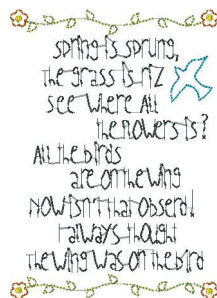 spring is sprung,
the grass is riz
see where All
the flowers is?
All the birds
are on the wing
Now isn't that obserd!
I always thought
the wing was on the bird